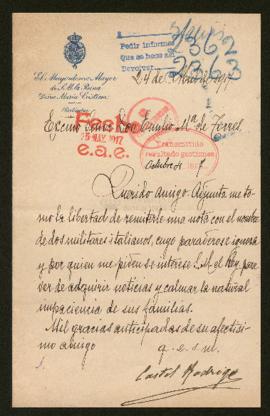 El Mayordomo Mayor
de S. M. la Reina
Doña María Cristina
Particular
Pedir informes
Que se hace así
Devolver
2362
2363
24 de 1917
Excmo Señor Don Emilio Mª de Torres
Fecha
MAY. 1917
e.a.e.
Transmitido
resultado gestiones
Octubre
Querido amigo: Adjunta me to-
mo la libertad de remitirle una nota con el nombre
de dos militares italianos, cuyo paradero se ignora
y por quien me piden se interese S. M. el Rey para
der de adquirir noticias y calmar la natural
impaciencia de sus familias.
Mil gracias anticipadas de su afectísi-
mo amigo
q. e. s. m.
Castel Rodrigo